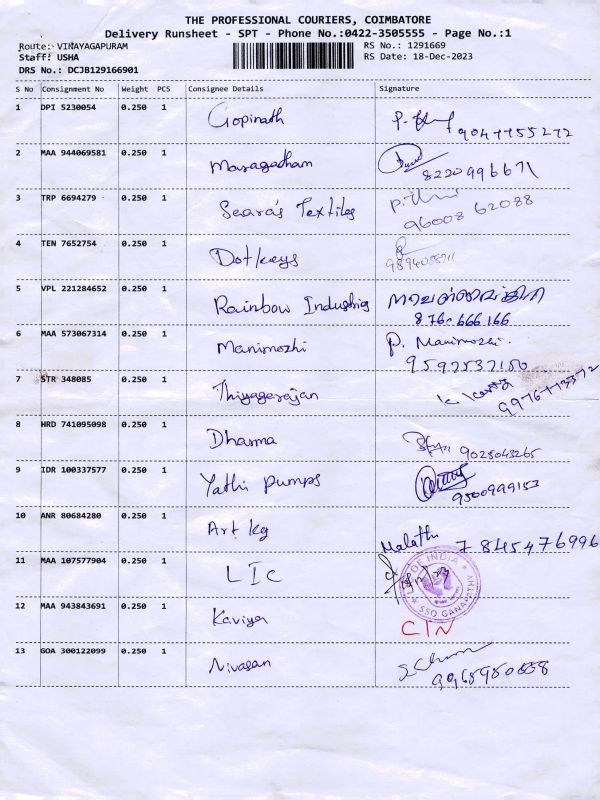 THE PROFESSIONAL COURIERS, COIMBATORE
Delivery Runsheet - SPT - Phone No.:0422-3505555 - Page No.:1
Route: VINAYAGAPURAM
RS No.: 1291669
Staff: USHA
RS Date: 18-Dec-2023
DRS No.: DCJB129166901
S No Consignment No Weight PCS Consignee Details Signature
1 DPI 5230054 0.250 1 Gopinath
2 MAA 944069581 0.250 1 Maragadham 8220996671
3 TRP 6694279 0.250 1 Seara's Textiles 96008 62088
4 TEN 7652754 0.250 1 Dotkeys
5 VPL 221284652 0.250 1 Rainbow Industries
6 MAA 573067314 0.250 1 Manimozhi P. Manimozhi.
7 STR 348085 0.250 1 Thiyagarajan
8 HRD 741095098 0.250 1 Dharma 9025043265
9 IDR 100337577 0.250 1 Yathi Pumps
10 ANR 80684280 0.250 1 Art kg Malathi 7845476996
11 MAA 107577904 0.250 1 LIC OF INDIA
SSO GANAPATHY
12 MAA 943843691 0.250 1 Kaviya C/N
13 GOA 300122099 0.250 1 Nivasan